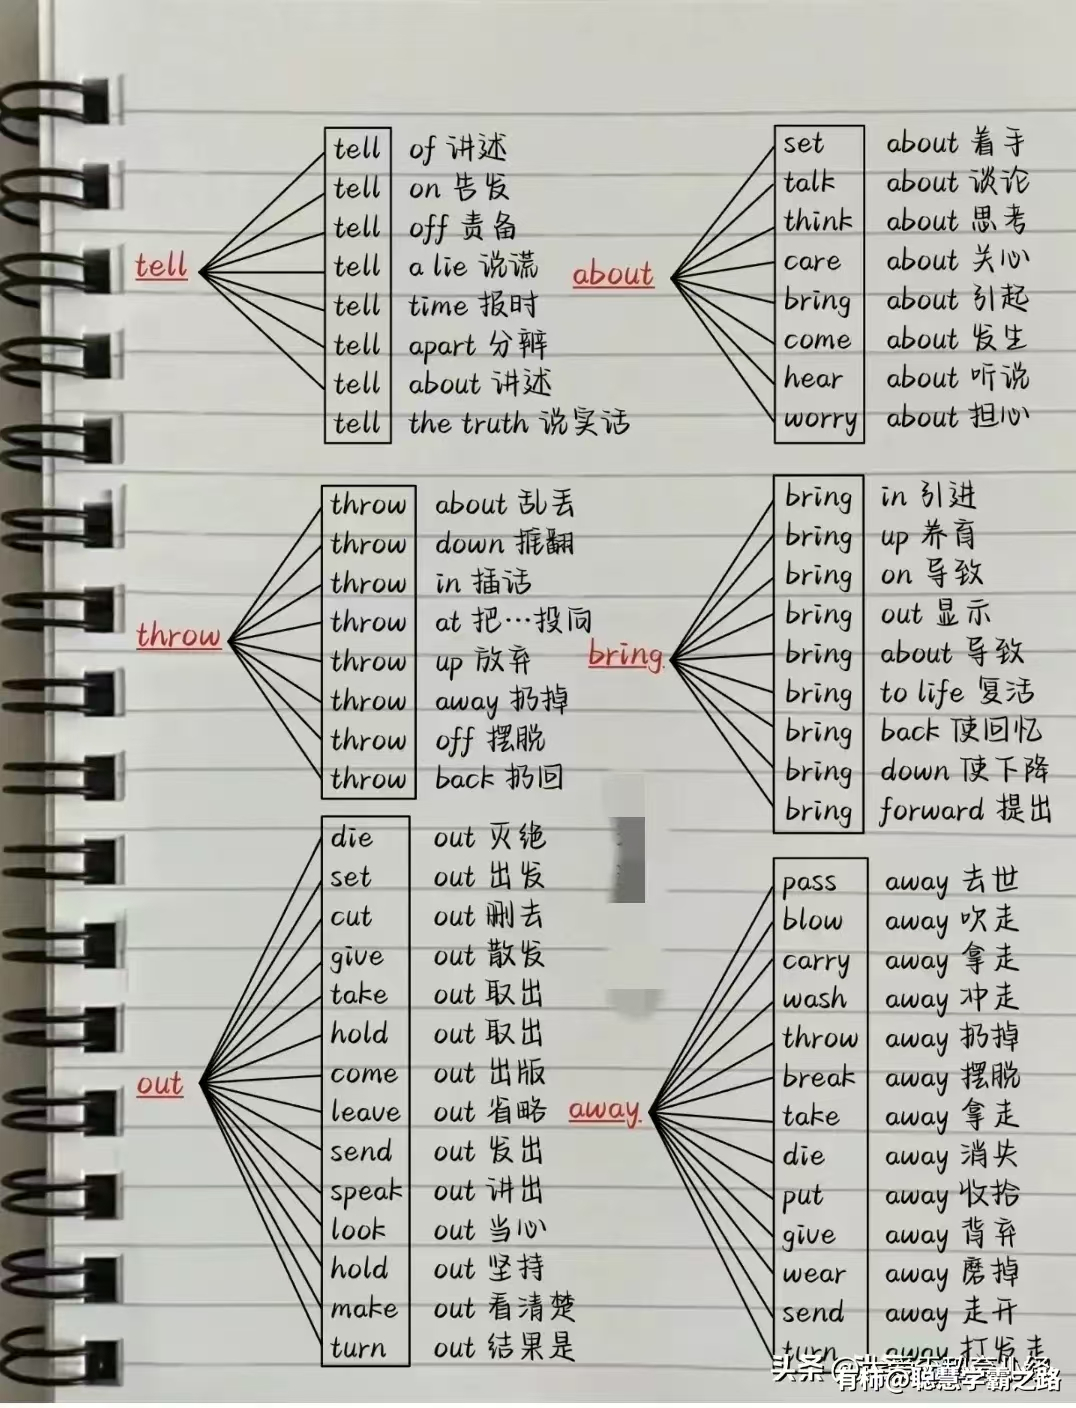 tell
tell of 讲述
tell on 告发
tell off 责备
tell a lie 说谎
tell time 报时
tell apart 分辨
tell about 讲述
tell the truth 说实话
about
set about 着手
talk about 谈论
think about 思考
care about 关心
bring about 引起
come about 发生
hear about 听说
worry about 担心
throw
throw about 乱丢
throw down 推翻
throw in 插话
throw at 把…投向
throw up 放弃
throw away 扔掉
throw off 摆脱
throw back 扔回
bring
bring in 引进
bring up 养育
bring on 导致
bring out 显示
bring about 导致
bring to life 复活
bring back 使回忆
bring down 使下降
bring forward 提出
out
die out 灭绝
set out 出发
cut out 删去
give out 散发
take out 取出
hold out 取出
come out 出版
leave out 省略
send out 发出
speak out 讲出
look out 当心
hold out 坚持
make out 看清楚
turn out 结果是
away
pass away 去世
blow away 吹走
carry away 拿走
wash away 冲走
throw away 扔掉
break away 摆脱
take away 拿走
die away 消失
put away 收拾
give away 背弃
wear away 磨掉
send away 走开
turn away 打发走
头条
有柿@聪慧学霸之路